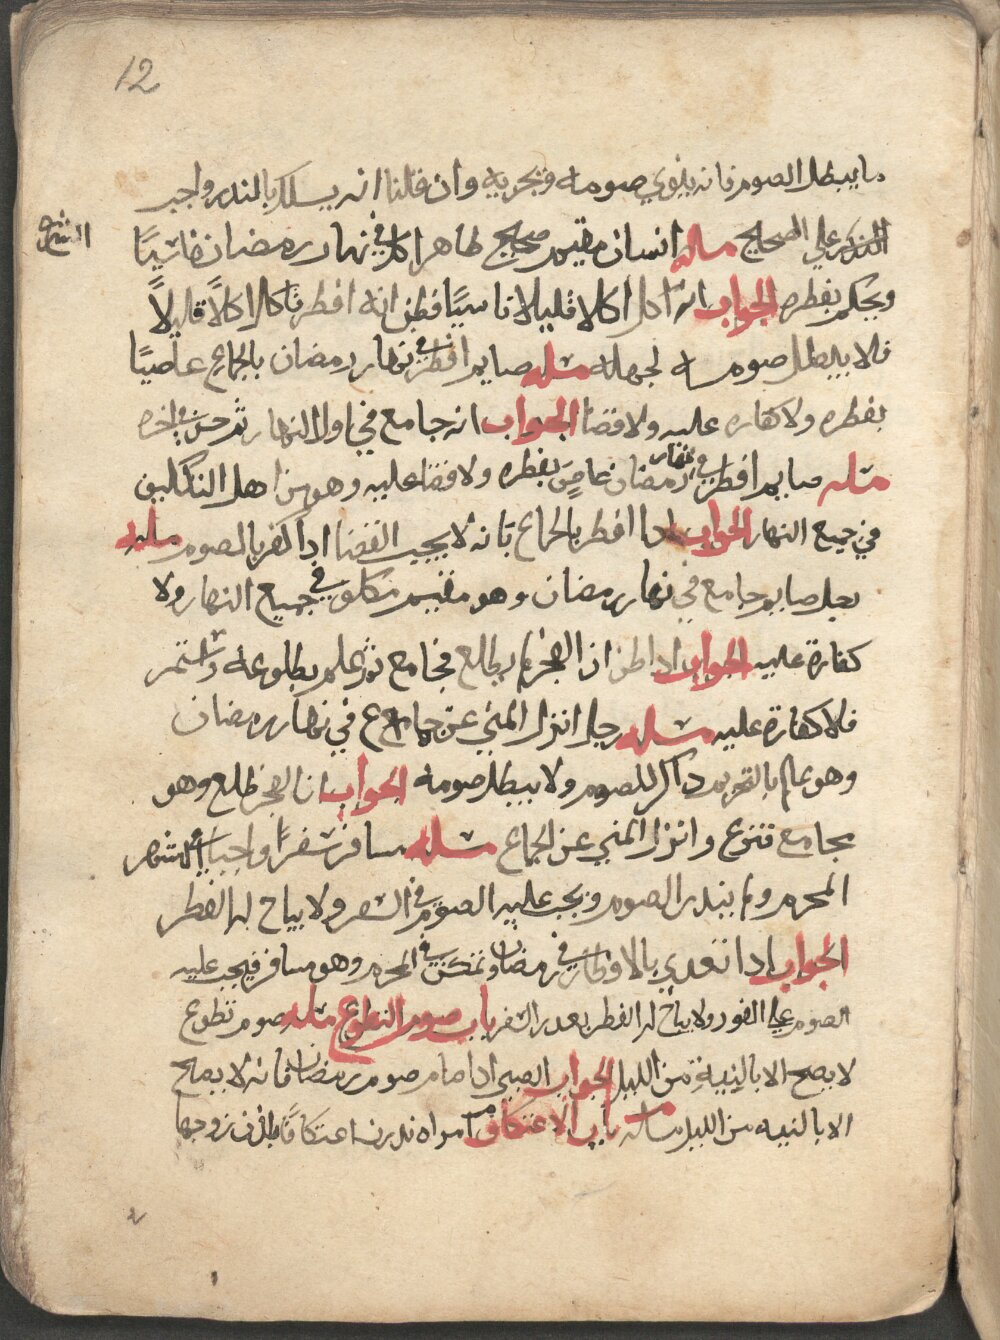 12
ما يبطل الصوم فانه ينوي صومه ويجزيه وان قلنا انه يسلك بالنذر واجب
الشرع
النذر على الصحيح مسله انسان مقيم صحيح طاهر اكل في نهار رمضان ناسيًا
ويحكم بفطره الجواب انه اكل اكلا قليلا ناسيًا فظن انه افطر فاكل اكلاً قليلاً
فلا يبطل صومه لجهله مسله صايم افطر في نهار رمضان بالجماع عاصيًا
بفطره ولا كفاره عليه ولا قضا الجواب انه جامع في اول النهار ثم جن في اخره
مسله صايم افطر في نهار رمضان عاصٍ بفطره ولا قضا عليه وهو من اهل التكليف
في جميع النهار الجواب اذا افطر بالجماع فانه لا يجب القضا اذا كفر بالصوم مسله
رجل صايم جامع في نهار رمضان وهو مقيم مكلف في جميع النهار ولا
كفارة عليه الجواب اذا ظن ان الفجر لم يطلع فجامع ثم علم بطلوعه واستمر
فلا كفارة عليه مسله رجل انزل المني عن جماع في نهار رمضان
وهو عالم بالتحريم ذاكر للصوم ولا يبطل صومه الجواب ان الفجر طلع وهو
مجامع فنزع وانزل المني عن الجماع مسله مسافر سفرًا واجبا في الشهر
المحرم ولم ينذر الصوم ويجب عليه الصوم في السفر ولا يباح له الفطر
الجواب اذا تعدي بالافطار في رمضان وتمكن في المحرم وهو مسافر فيجب عليه
الصوم على الفور ولا يباح له الفطر بعدر السفر باب صوم التطوع مسله صوم تطوع
لا يصح الا بالنية من الليل الجواب الصبي اذا صام صوم رمضان فانه لا يصح
الا بالنيه من الليل مسله باب الاعتكاف امراه نذرت اعتكافًا باذن زوجها